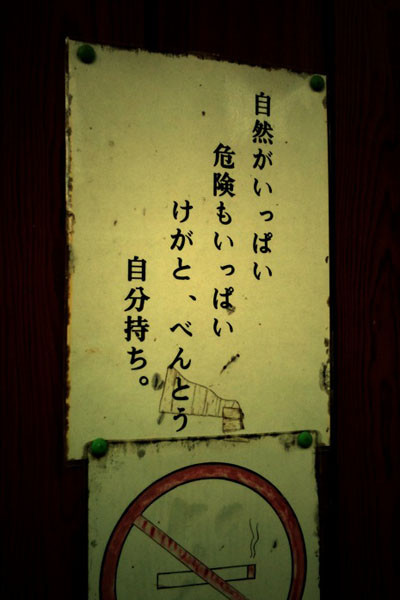 自然がいっぱい
危険もいっぱい
けがと、べんとう
自分持ち。